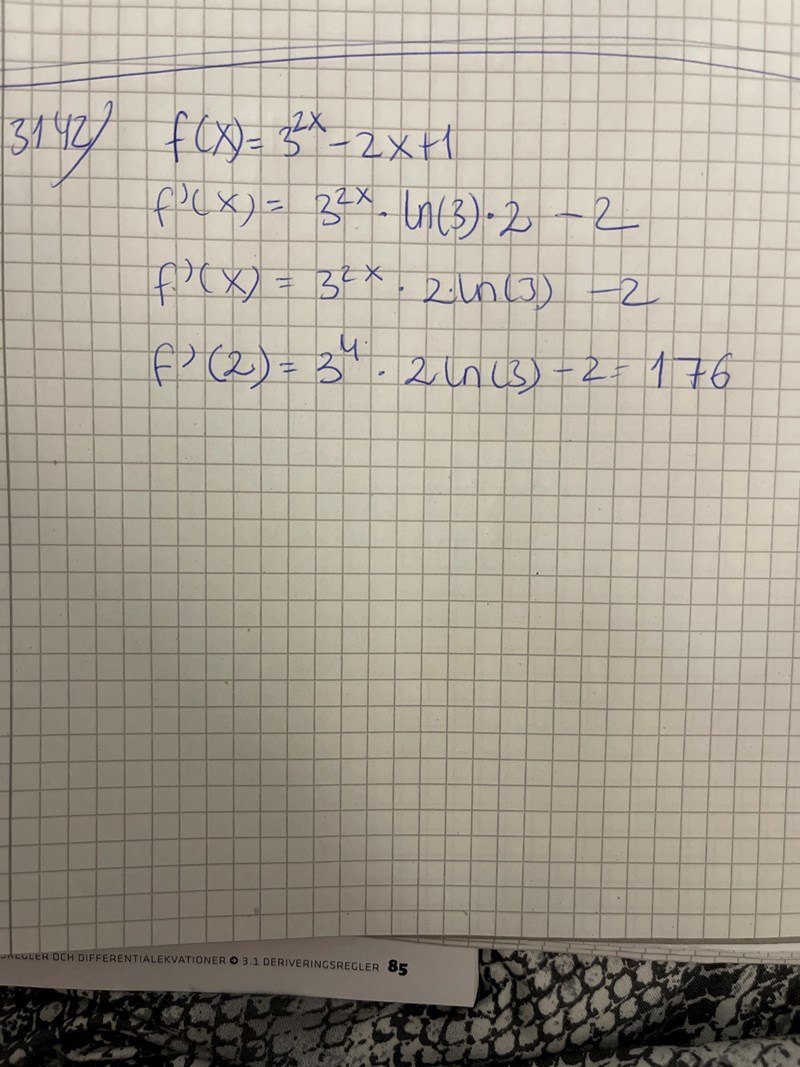 3142) f(x) = 3^2x - 2x + 1
f'(x) = 3^2x · ln(3) · 2 - 2
f'(x) = 3^2x · 2·ln(3) - 2
f'(2) = 3^4 · 2 ln(3) - 2 = 176
REGLER OCH DIFFERENTIALEKVATIONER 3.1 DERIVERINGSREGLER 85